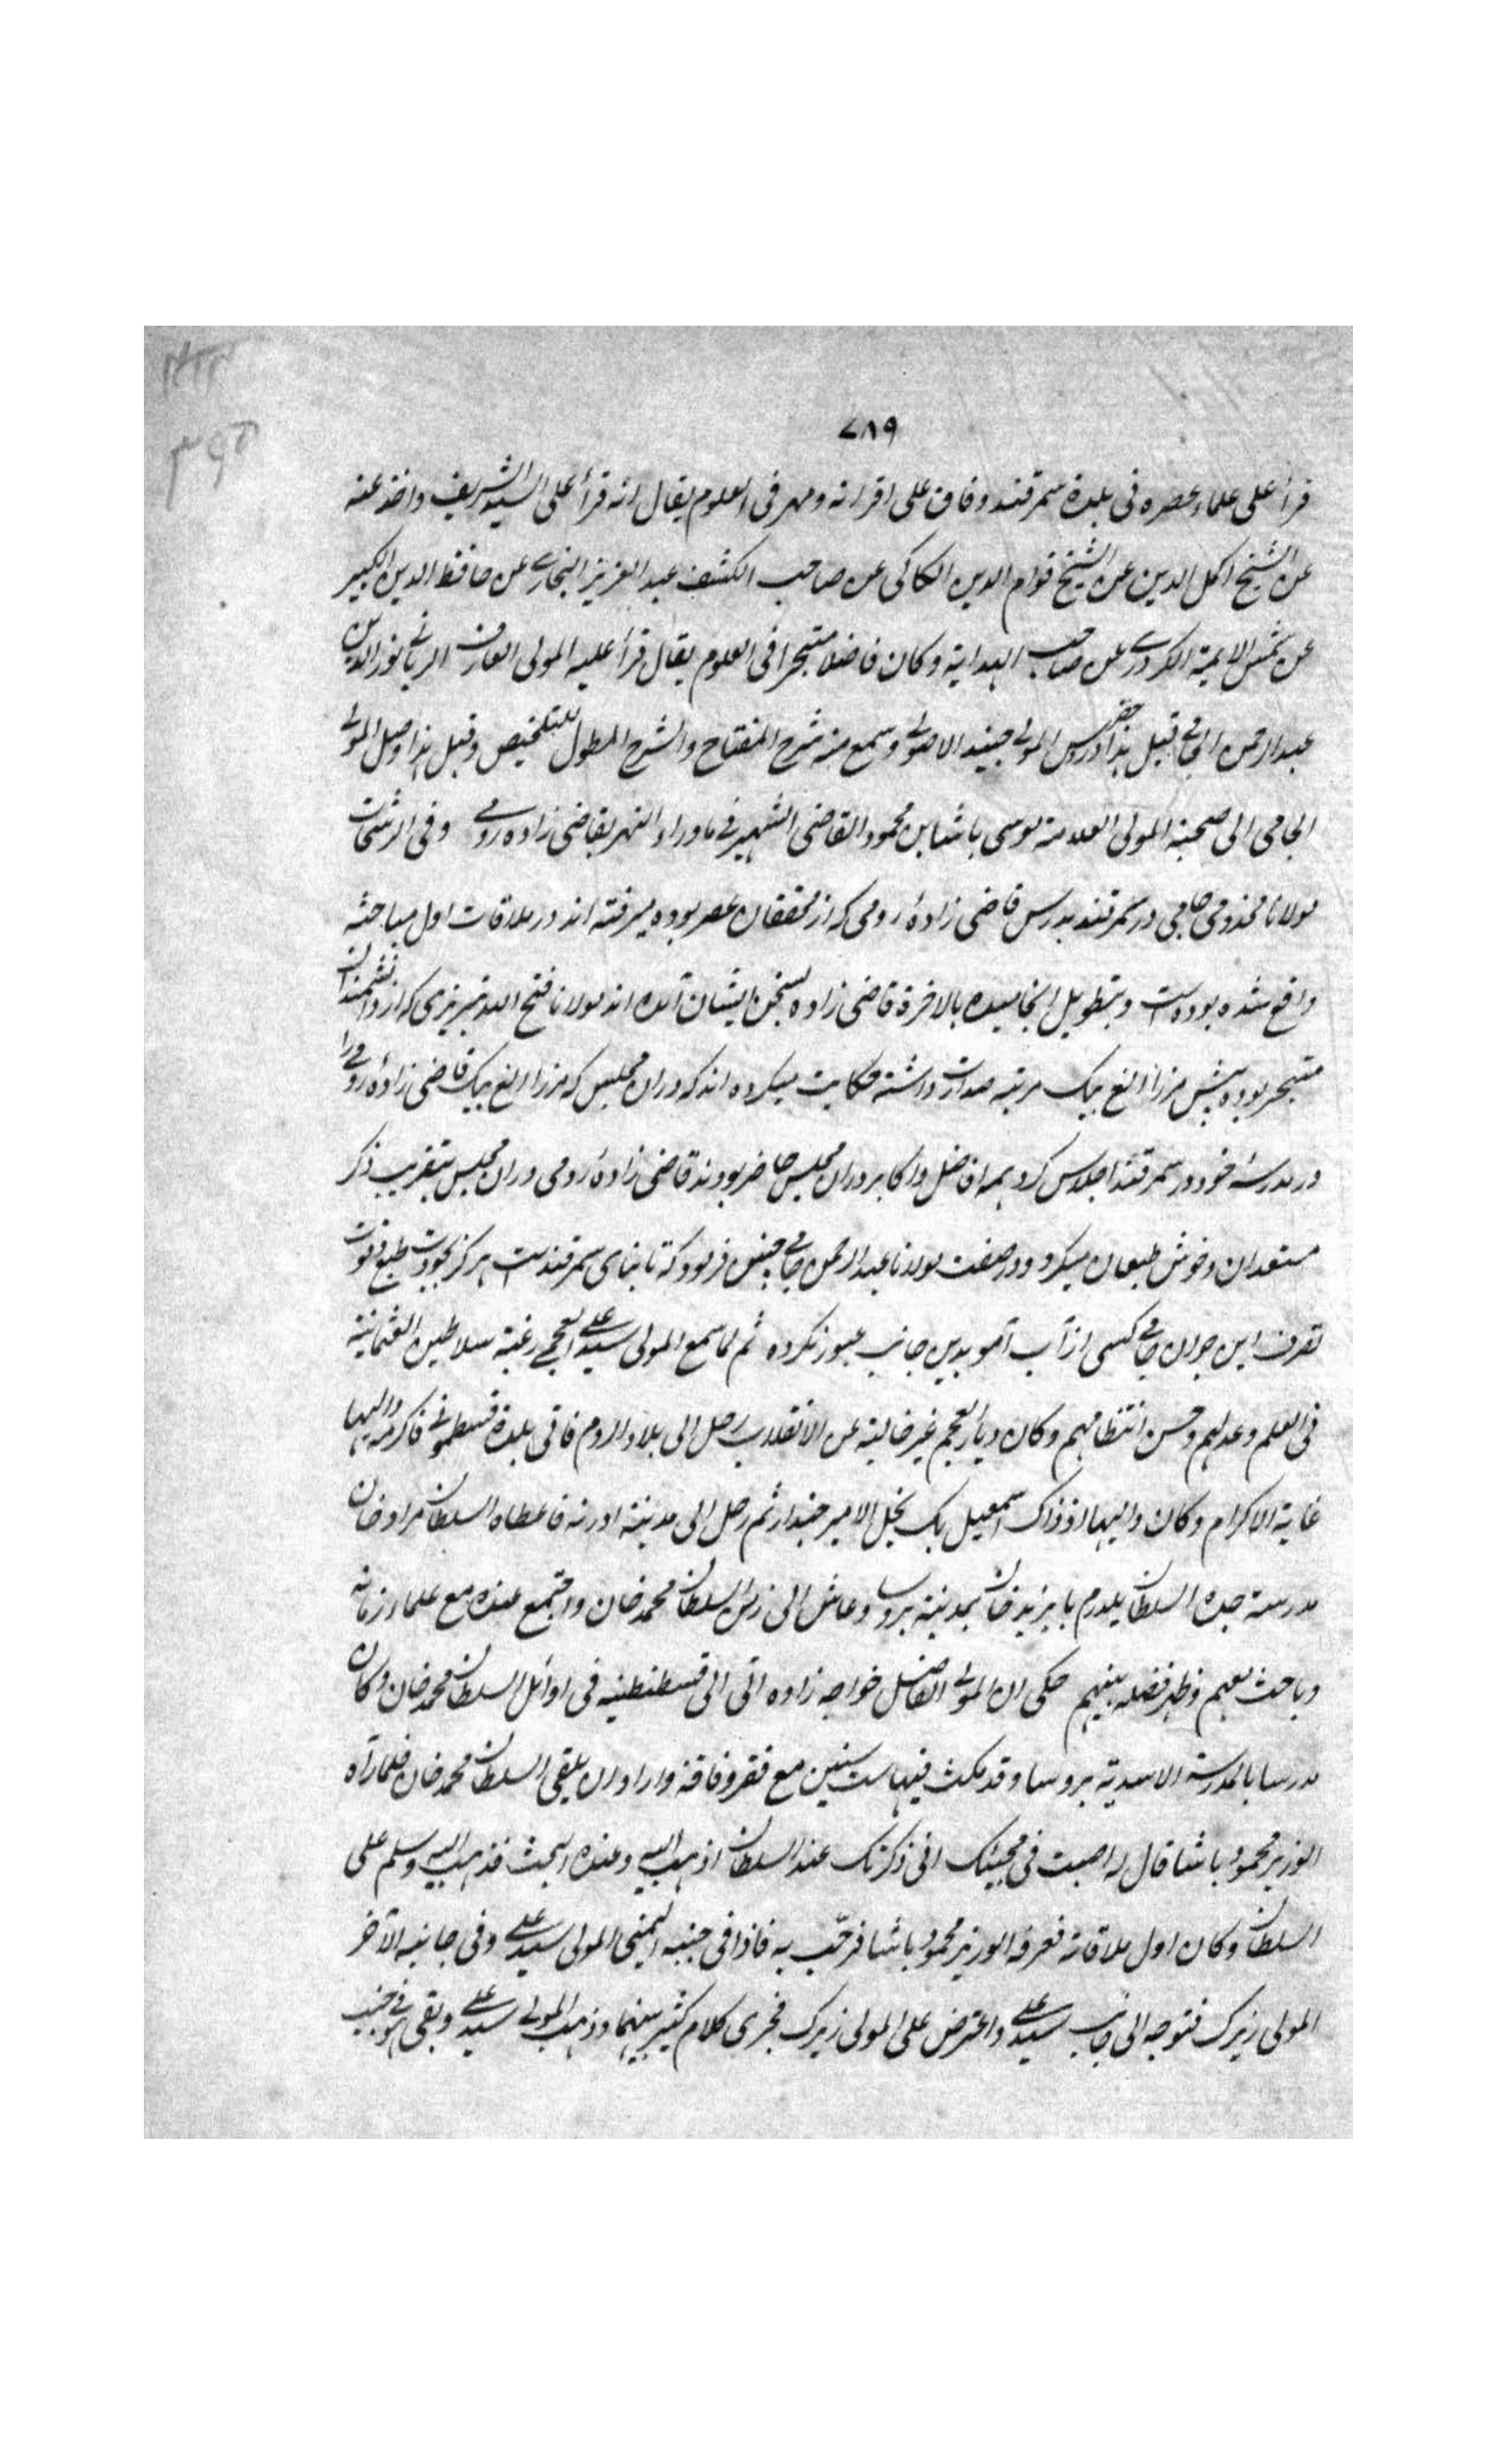 ٧٨٩
قرأ على علماء عصره فى بلدة سمرقند وفاق على اقرانه ومهر فى العلوم يقال انه قرأ على السيد الشريف واخذ عنه
عن الشيخ اكمل الدين عن الشيخ قوام الدين الكاكى عن صاحب الكشف عبد العزيز البخارى عن حافظ الدين الكبير
عن شمس الايمة الكردرى عن صاحب الهداية وكان فاضلا متبحرا فى العلوم يقال قرأ عليه المولى العارف الربانى نور الدين
عبد الرحمن الجامى قبل هذا حضر درس المولى جنيد الاصولى وسمع منه شرح المفتاح والشرح المطول للتلخيص وقبل هذا وصل المولى
الجامى الى صحبة المولى العلامة موسى باشا بن محمود القاضى الشهير فى ماوراء النهر بقاضى زاده رومى وفى الرشحات
مولانا مخدومى جامى در سمرقند بدرس قاضى زادۀ رومى كه از محققان عصر بوده ميرفته اند در ملاقات اول مباحثه
واقع شده بوده است وبتطويل انجاميده بالاخرة قاضى زاده بسخن ايشان آمده اند مولانا فتح الله تبريزى كه از دانشمندان
متبحر بوده پيش مرزا الغ بيك مرتبه صدارت داشته حكايت ميكرده اند كه دران مجلس كه مرزا الغ بيك قاضى زادۀ رومى را
در مدرسۀ خود در سمرقند اجلاس كرد همه افاضل واكابر دران مجلس حاضر بودند قاضى زادۀ رومى دران مجلس بتقريب ذكر
مستعدان وخوش طبعان ميكرد ودر صفت مولانا عبد الرحمن جامى چنين فرمود كه تا بناى سمرقند است هركز بجودت طبع وقوت
تصرف اين جوان جامى كسى از آب آمو بدين جانب عبور نكرده ثم لما سمع المولى سيد على العجمى رغبة سلاطين العثمانية
فى العلم وعدلهم وحسن انتظامهم وكان ديار العجم غير خالية عن الانقلاب رحل الى بلاد الروم فاتى بلدة قسطمونى فاكرمه واليها
غاية الاكرام وكان واليها اذ ذاك اسمعيل بك نجل الامير جندار ثم رحل الى مدينة ادرنه فاعطاه السلطان مراد خان
مدرسة جده السلطان يلدرم بايزيد خان بمدينة بروسا وعاش الى زمن السلطان محمد خان واجتمع عنده مع علماء زمانه
وباحث معهم وظهر فضله بينهم حكى ان المولى الفاضل خواجه زاده اتى الى قسطنطنيه فى اوائل السلطان محمد خان وكان
مدرسا بالمدرسة الاسدية ببروسا وقد مكث فيها ست سنين مع فقر وفاقة واراد ان يلقى السلطان محمد خان فلما رآه
الوزير محمود باشا قال له اصبت فى مجيئك انى ذكرتك عند السلطان اذهب اليه وعنده البحث فذهب اليه وسلم على
السلطان وكان اول ملاقاته فعرفه الوزير محمود باشا فرحّب به فاذا فى جنبه اليمنى المولى سيد على وفى جانبه الآخر
المولى زيرك فتوجه الى جانب سيد على واعترض على المولى زيرك فجرى كلام كثير بينهما وذهب المولى سيد على وبقى هو فى جنب